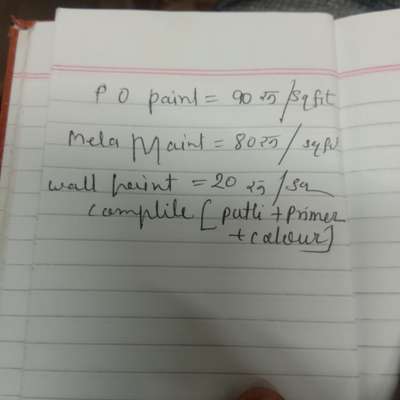 P O paint = 90 रु/sqfit
Mela Maint = 80 रु/sqfit
wall paint = 20 रु/sq
Complile [putli + Primer
+ Colour]